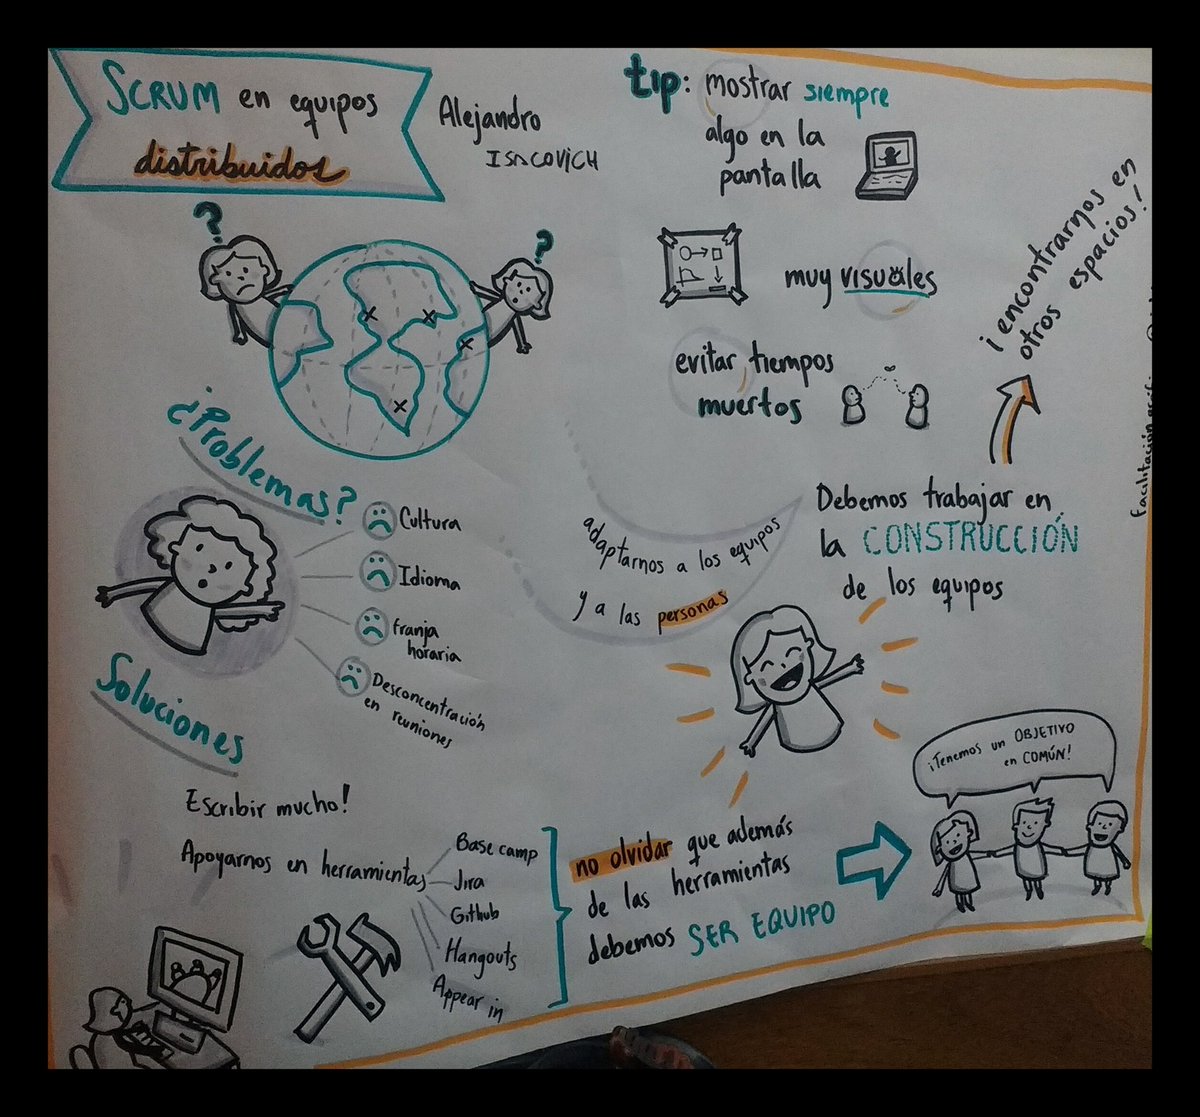 SCRUM en equipos
distribuidos
Alejandro
ISACOVICH
?
?
¿Problemas?
Cultura
Idioma
franja
horaria
Desconcentración
en reuniones
Soluciones
Escribir mucho!
Apoyarnos en herramientas
Base camp
Jira
Github
Hangouts
Appear in
no olvidar que además
de las herramientas
debemos SER EQUIPO
¡Tenemos un OBJETIVO
en COMÚN!
tip: mostrar siempre
algo en la
pantalla
muy visuales
evitar tiempos
muertos
adaptarnos a los equipos
y a las personas
Debemos trabajar en
la CONSTRUCCIÓN
de los equipos
¡encontrarnos en
otros espacios!
facilitación